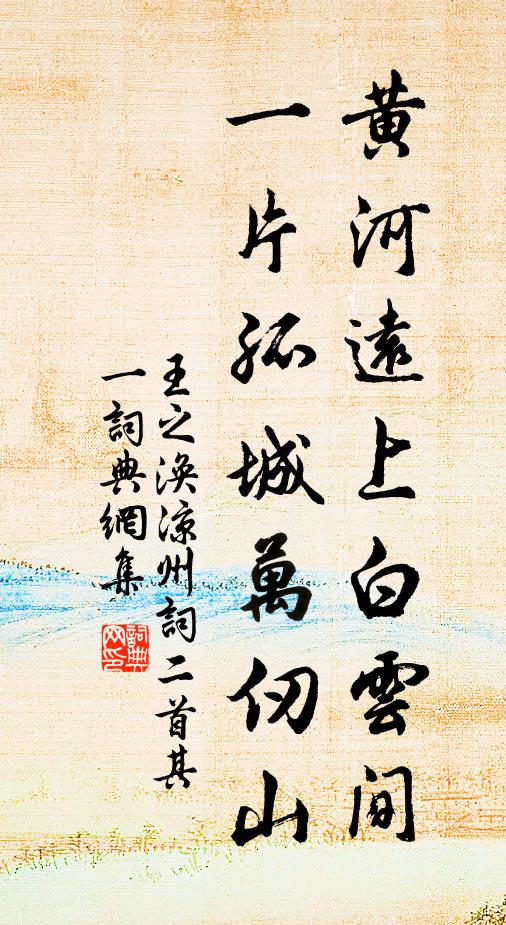 黄河遠上白雲間
一片孤城萬仞山
王之涣涼州詞二首其
一詞典網集
詞典
网印